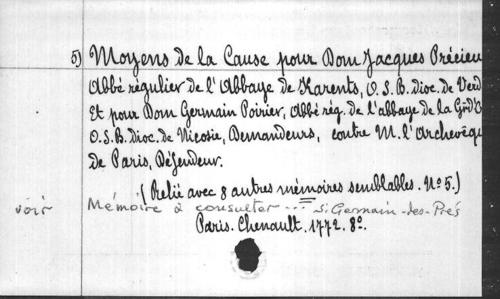 5) Moyens de la Cause pour Dom Jacques Précieu
Abbé régulier de l'Abbaye de Karents, O.S.B. dioc. de Verd
Et pour Dom Germain Poirier, Abbé rég. de l'abbaye de la
O.S.B. dioc. de Nicosie, Demandeurs, contre M. l'Archevêqu
de Paris, Défendeur.
(Relié avec 8 autres mémoires semblables. No 5.)
voir Mémoire à consulter ... St Germain-des-Prés
Paris. Chenault. 1772. 8o.